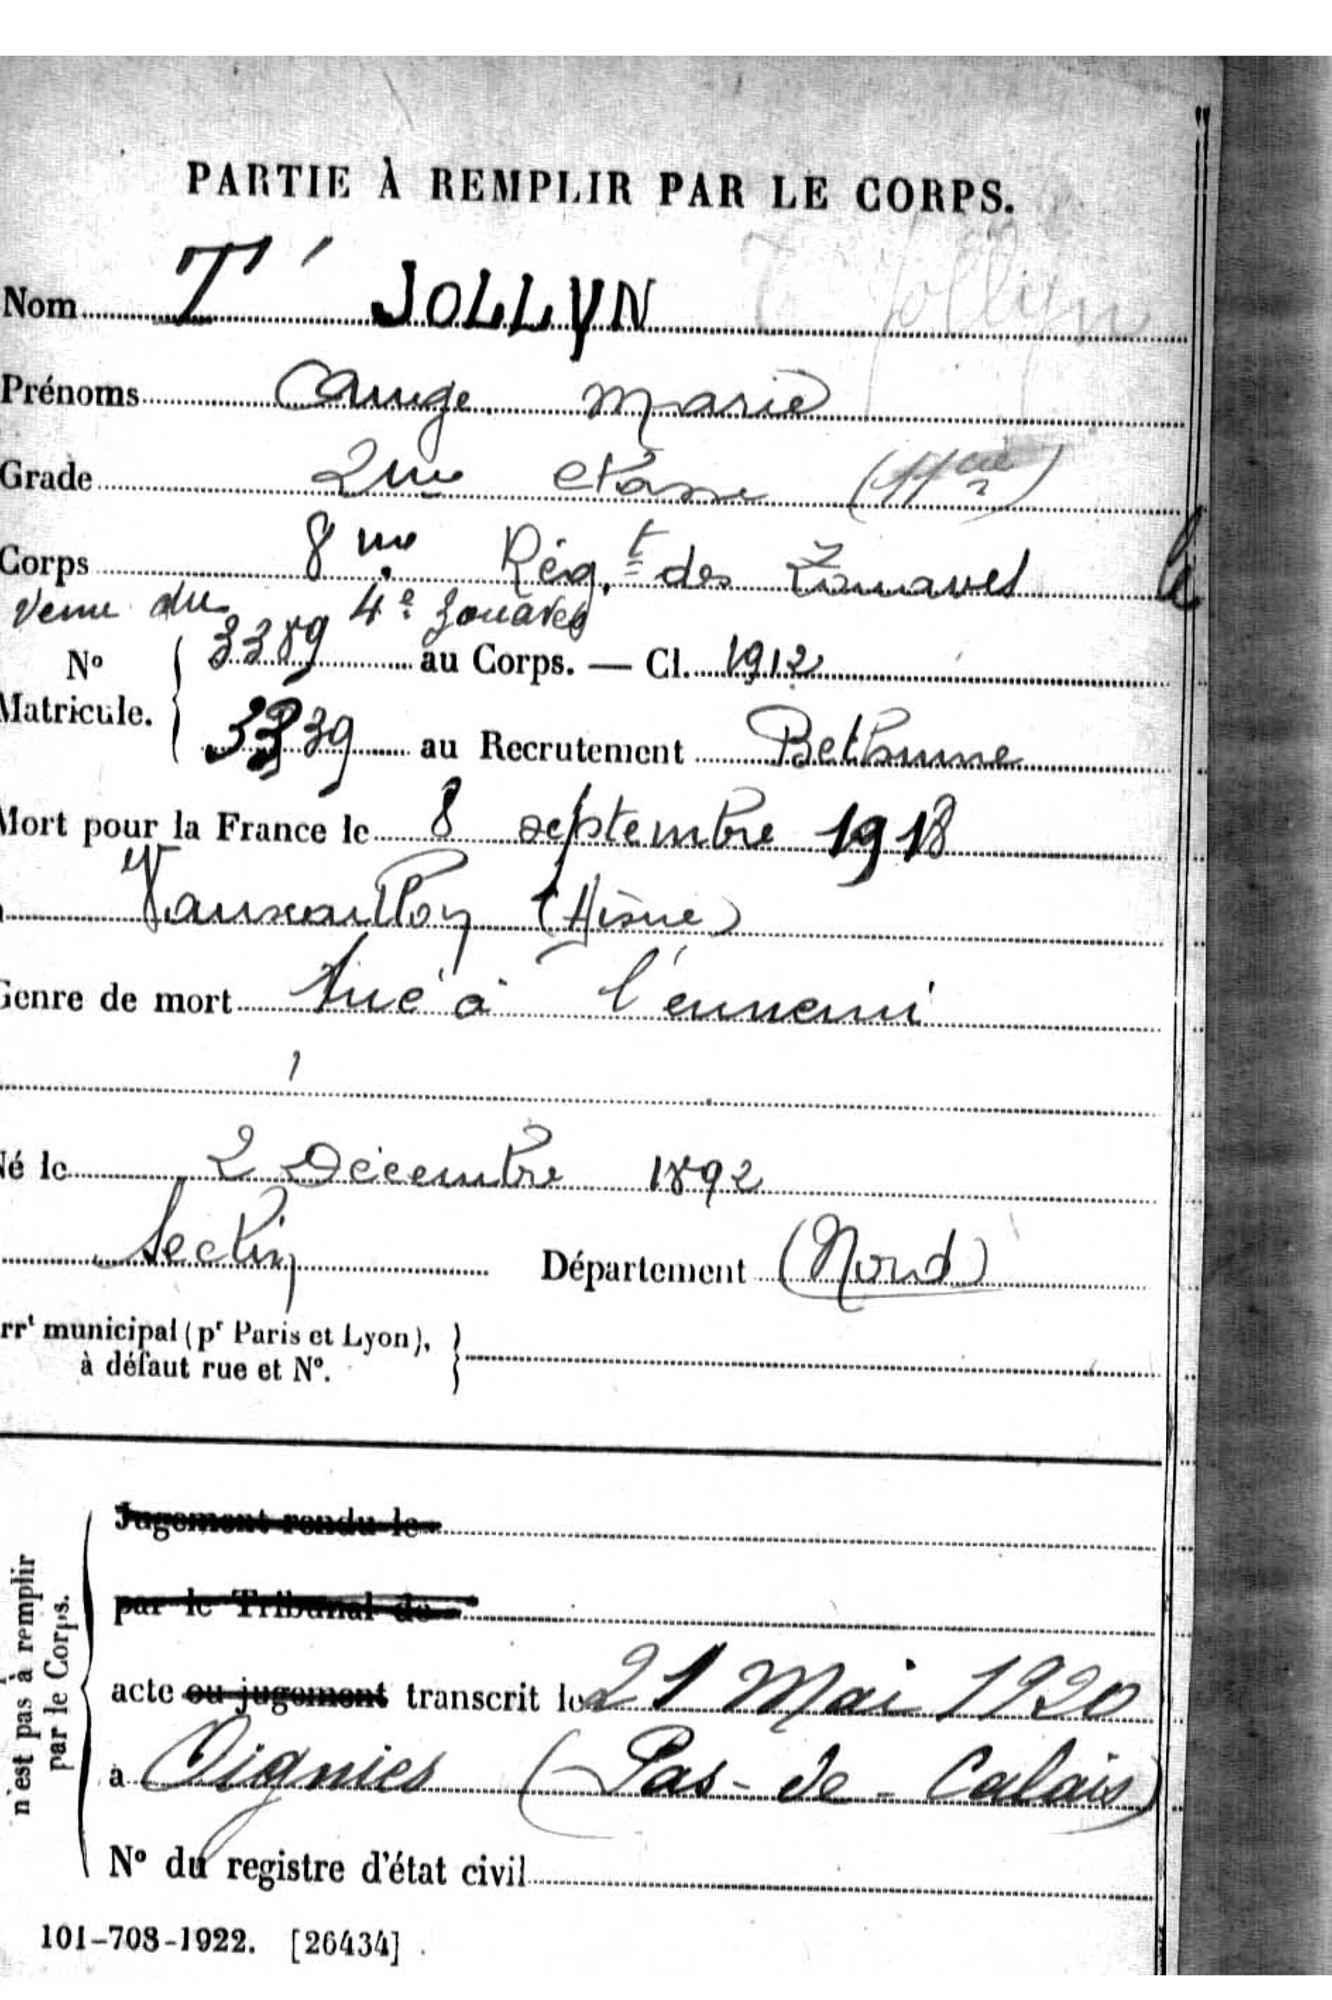 PARTIE À REMPLIR PAR LE CORPS.
Nom T' JOLLYN T' Jollyn
Prénoms Ange Marie
Grade 2me classe
Corps 8me Régt des Zouaves
Venu du 4e Zouaves
No 3389 au Corps. — Cl. 1912
Matricule. 3339 au Recrutement Bethune
Mort pour la France le 8 septembre 1918
Vauxaillon (Aisne)
Genre de mort tué à l'ennemi
Né le 2 Décembre 1892
Seclin Département (Nord)
rrt municipal (pr Paris et Lyon),
à défaut rue et No.
Jugement rendu le
par le Tribunal de
acte ou jugement transcrit le 21 Mai 1920
à Oignies (Pas-de-Calais)
No du registre d'état civil
n'est pas à remplir
par le Corps.
101-708-1922. [26434]